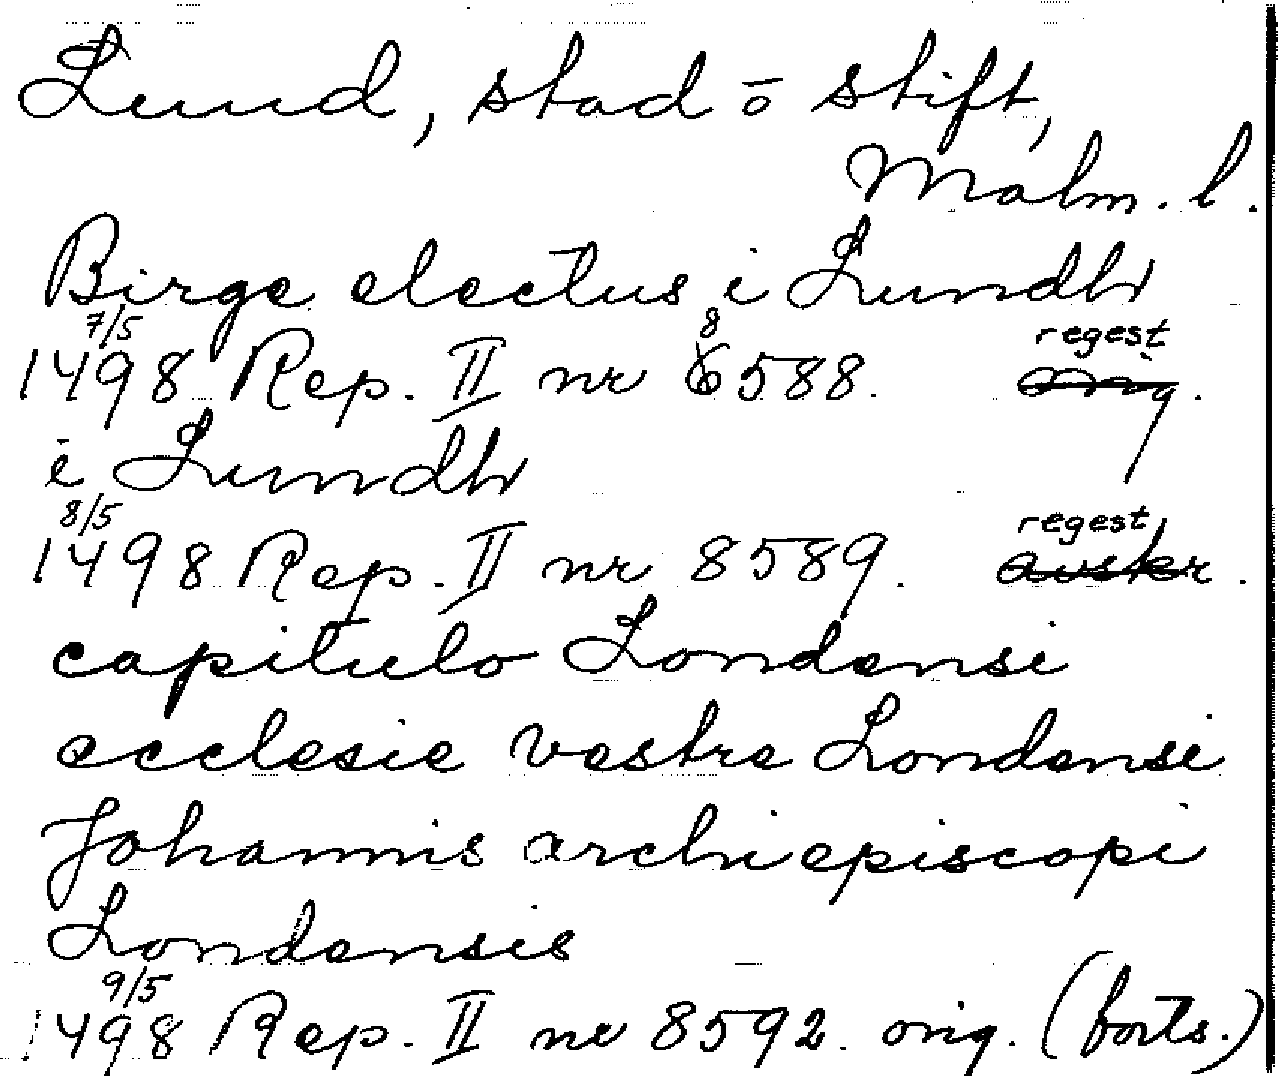 Lund, stad ō stift,
Malm. l.
Birge electus i Lundh
7/5
1498 Rep. II nr 8588. regest
i Lundh
8/5
1498 Rep. II nr 8589. regest
capitulo Londensi
ecclesie vestre Londensi
Johannis archiepiscopi
Londensis
9/5
1498 Rep. II nr 8592. orig. (forts.)